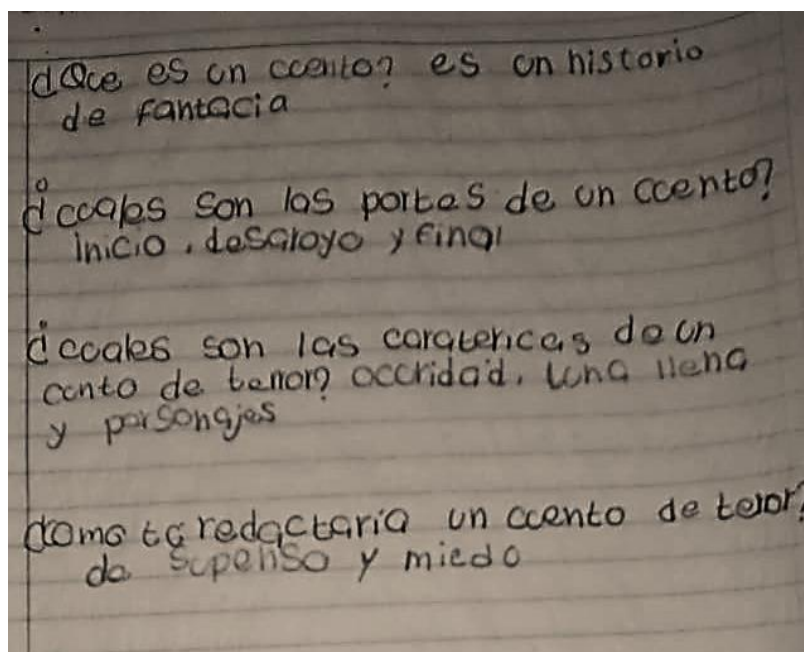 ¿Que es un cuento? es un historio
de fantacia
¿cuales son las portes de un cuento?
inicio, desaroyo y final
¿cuales son las caratericas de un
cunto de terror? occridad, luna llena
y personajes
¿como tu redactaria un cuento de teror?
de supenso y miedo